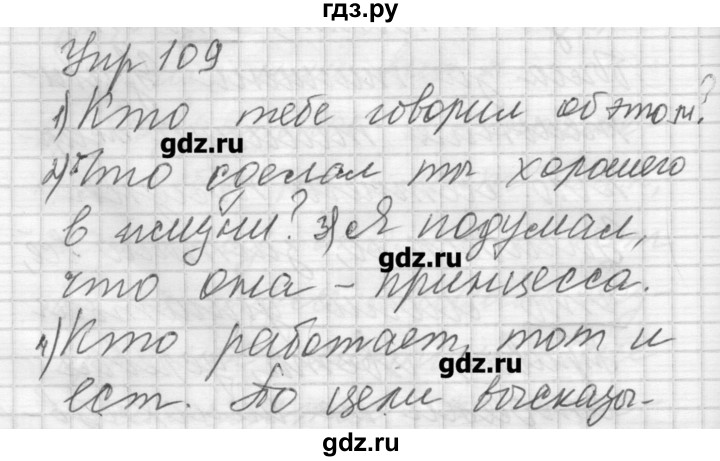 гдз.ру
Упр 109
1) Кто тебе говорил об этом?
gdz.ru
2) Что сделал ты хорошего
в жизни? 3) Я подумал,
gdz.ru
что она – принцесса.
4) Кто работает, тот и
gdz.ru
ест. По цели высказы-
gdz.ru